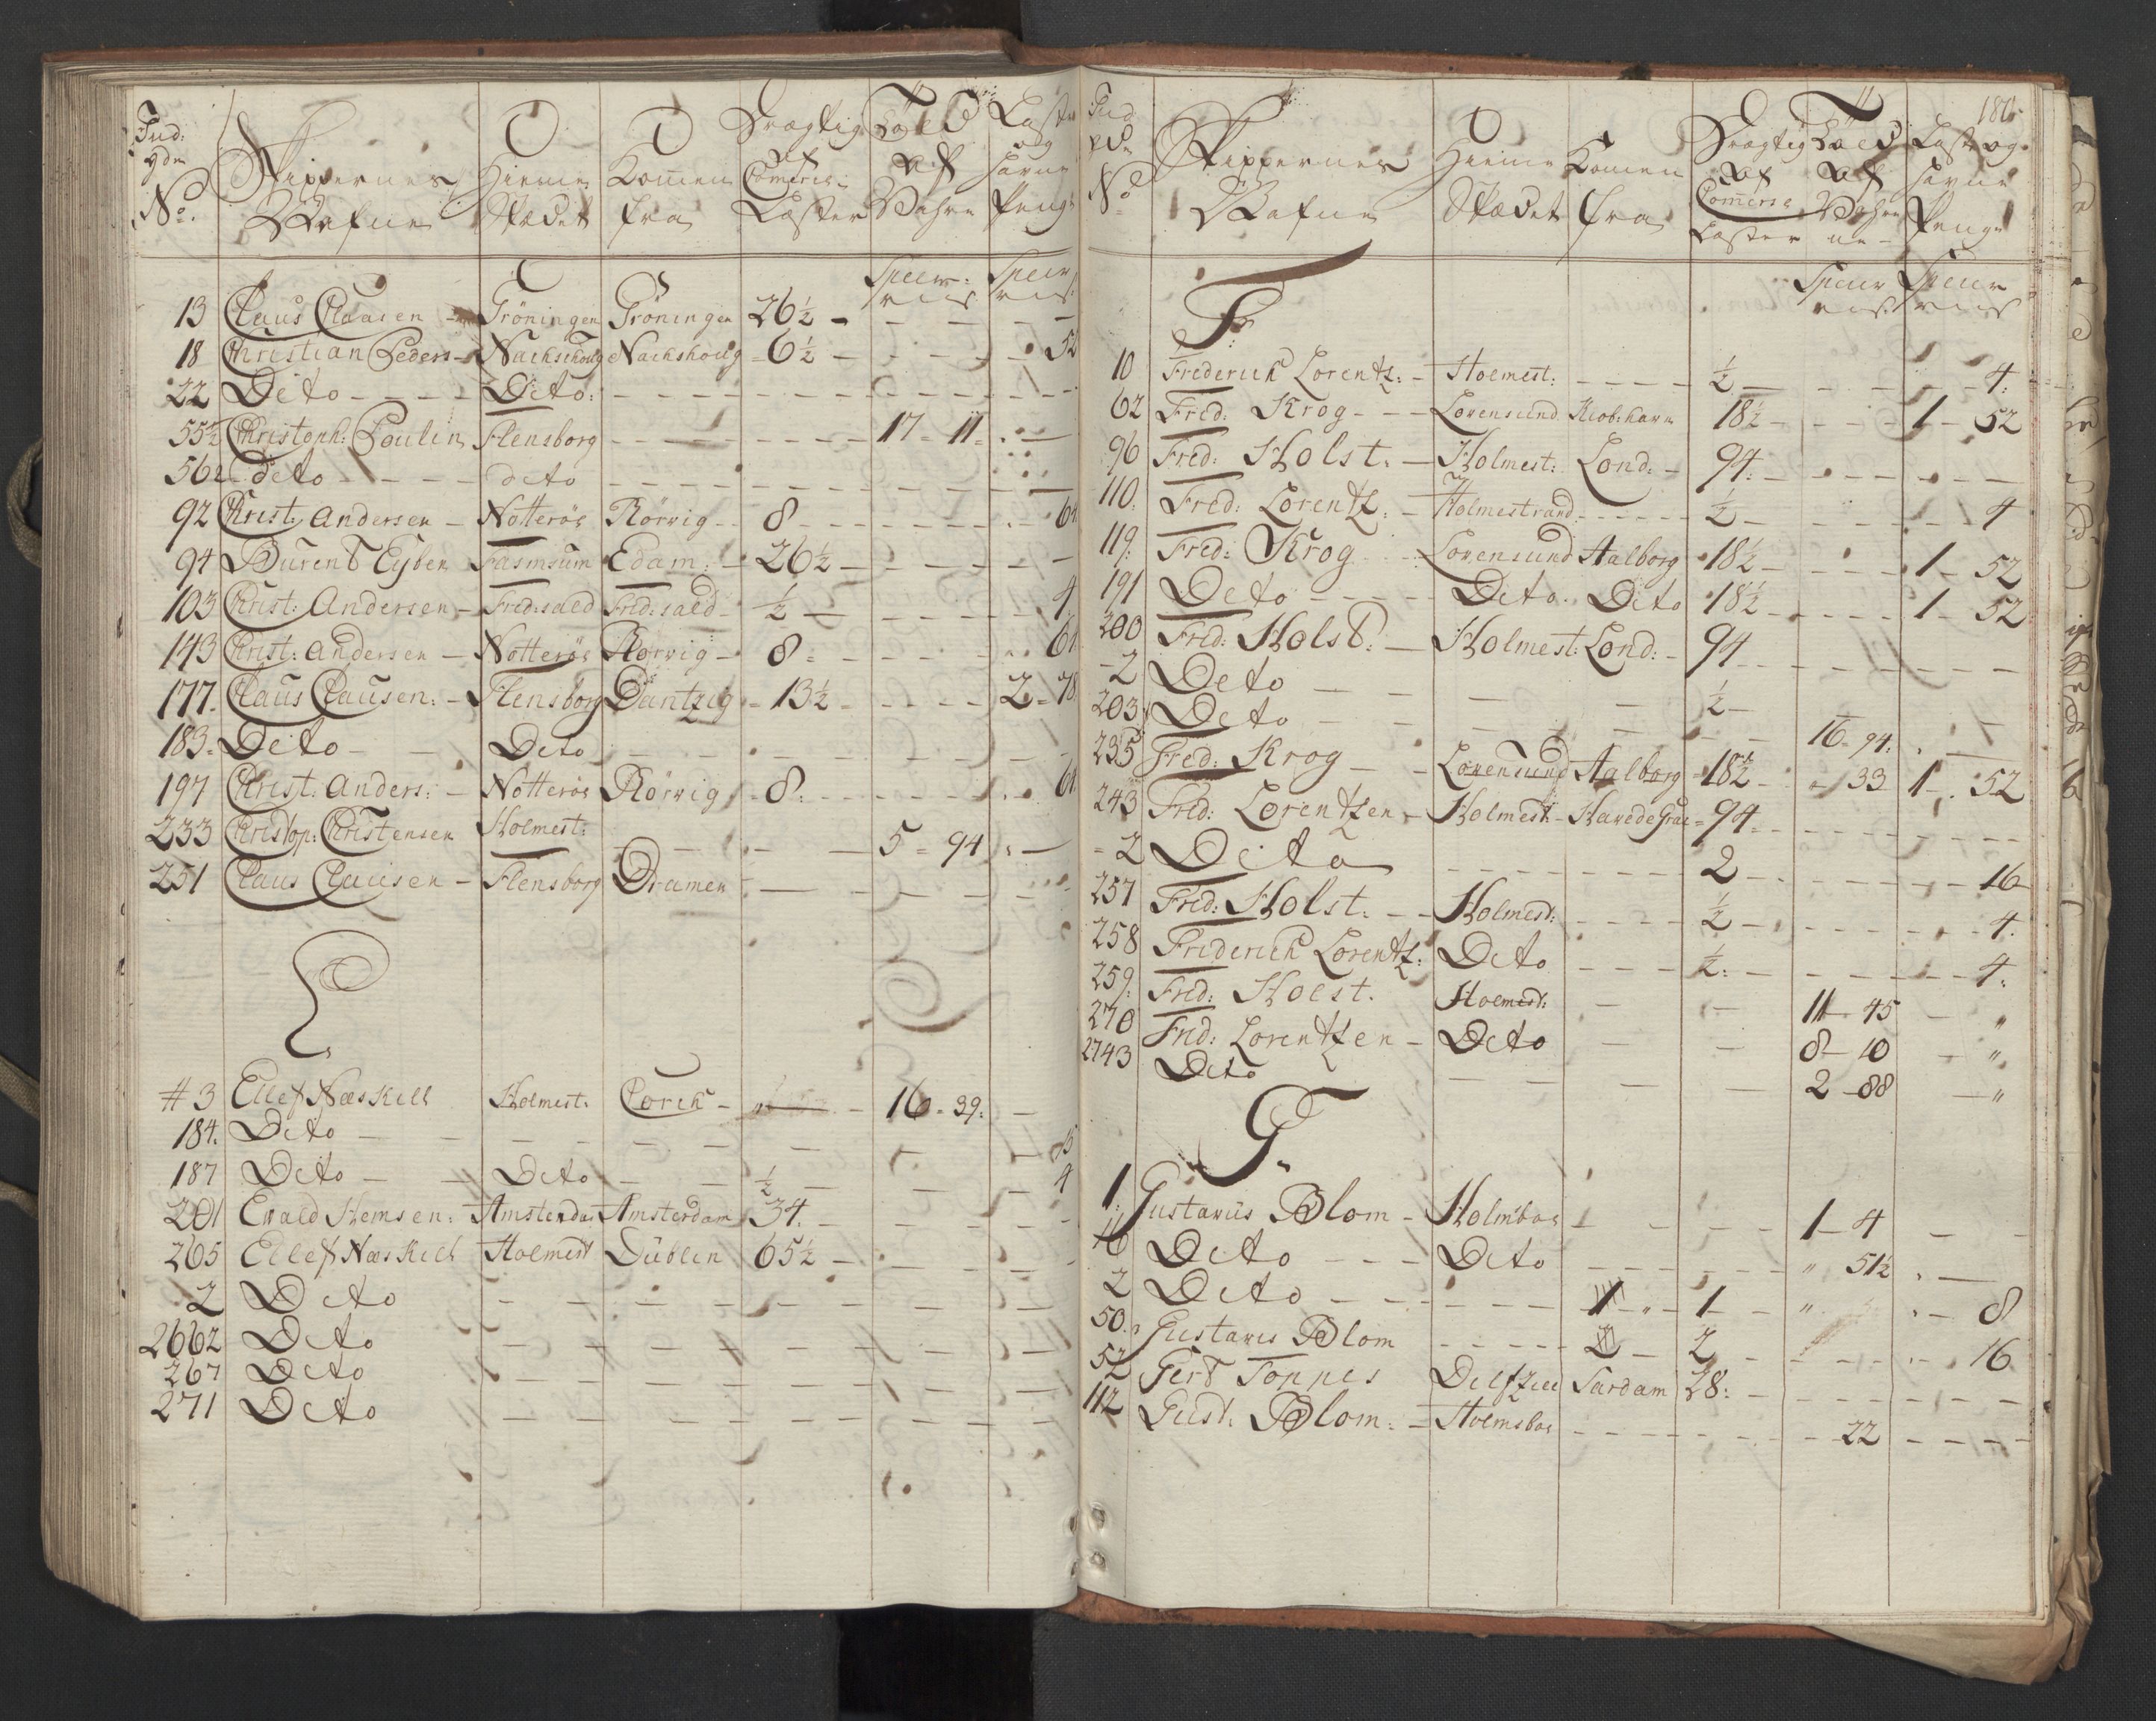 Ind:
gdn
No.
Skippernes
Nafne
Hieme
Stædet
Komen
fra
Drægtig
af
Comerce
Læster
Told
af
Vahre
Læste
og
Havne
Penge
Specier Specier
13 Claus Claasen Gröningen Gröningen 26½
18 Christian Peders Nackschoug Nackshoug 6½ 52
22 Deto Deto
55½ Christoph: Poulin Flensborg 17 11
562 deto deto
92 Christ: Andersen Nötteröe Rörvig 8 64
94 Burent Eyben Fasmsum Edam 26½
103 Christ: Andersen Fred:sald Fred:sald ½ 4
143 Christ: Andersen Nötteröe Rörvig 8 64
177 Claus Clausen Flensborg Dantzig 13½ 2 78
183 Deto Deto
197 Christ: Anders: Nötteröe Rörvig 8 64
233 Christop: Christensen Holmest: 5 94
251 Claus Clausen Flensborg Dramen
E
#3 Ellef Næskild Holmest: Corck 16 39
184 Deto
187 Deto Deto ½ 4
201 Evald Hemsen Amsterdam Amsterdam 34
265 Ellef Næskild Holmest Dublin 65½
2 Deto
2662 Deto
267 Deto
271 Deto
Ind
gdn
No
Skippernes
Nafne
Hieme
Stædet
Komen
fra
Drægtig
af
Comerce
Læster
Told
af
Vahre
ne
Læst og
Havne
Penge
Specier Specier
F:
10 Frederich Lorentz: Holmest: ½ 4
62 Fred: Krog Lovensund Kiob:havn 18½ 1 52
96 Fred: Holst. Holmest: Lond: 94
110 Fred: Lorentz: Holmestrand ½ 4
119 Fred: Krog Lovensund Aalborg 18½ 1 52
191 Deto Deto Deto 18½ 1 52
200 Fred: Holst. Holmest: Lond: 94
2 Deto ½
203 Deto 16 94
235 Fred: Krog Lovensund Aalborg 18½ 33 1 52
243 Fred: Lorentzen Holmest: Havrede Grae 94
2 Deto 2 16
257 Fred: Holst. Holmest: ½ 4
258 Friderich Lorentz: Deto ½ 4
259 Fred: Holst. Holmest: 11 45 "
270 Fred: Lorentzen Deto 8 10 "
2743 Deto 2 88 "
G.
1 Gustavus Blom Holmsboe 1 4
16 Deto Deto " 51½
2 Deto 1 " 8
50 Gustavus Blom 2 16
52 Gert Tonnes Delfziel Sardam 28
112 Gust. Blom Holmsboe 22